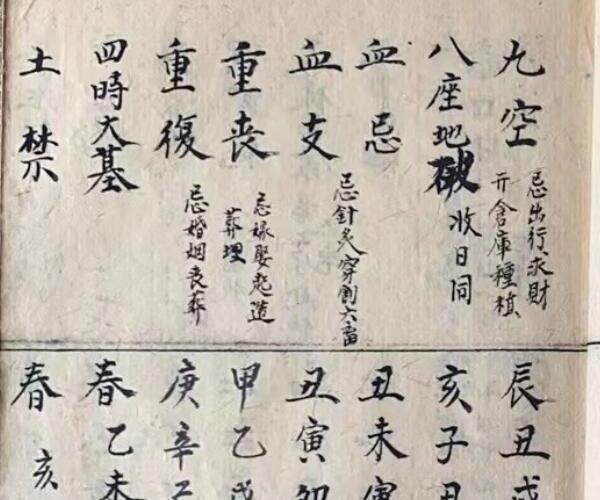 九空
忌出行求財
开倉庫種植
八座地破
收日同
血忌
血支
忌針灸穿割六畜
重喪
忌嫁娶起造
葬埋
重復
忌婚姻喪葬
四時大墓
土禁
辰丑戌
亥子丑
丑未寅
丑寅卯
甲乙
庚辛
春乙未
春亥